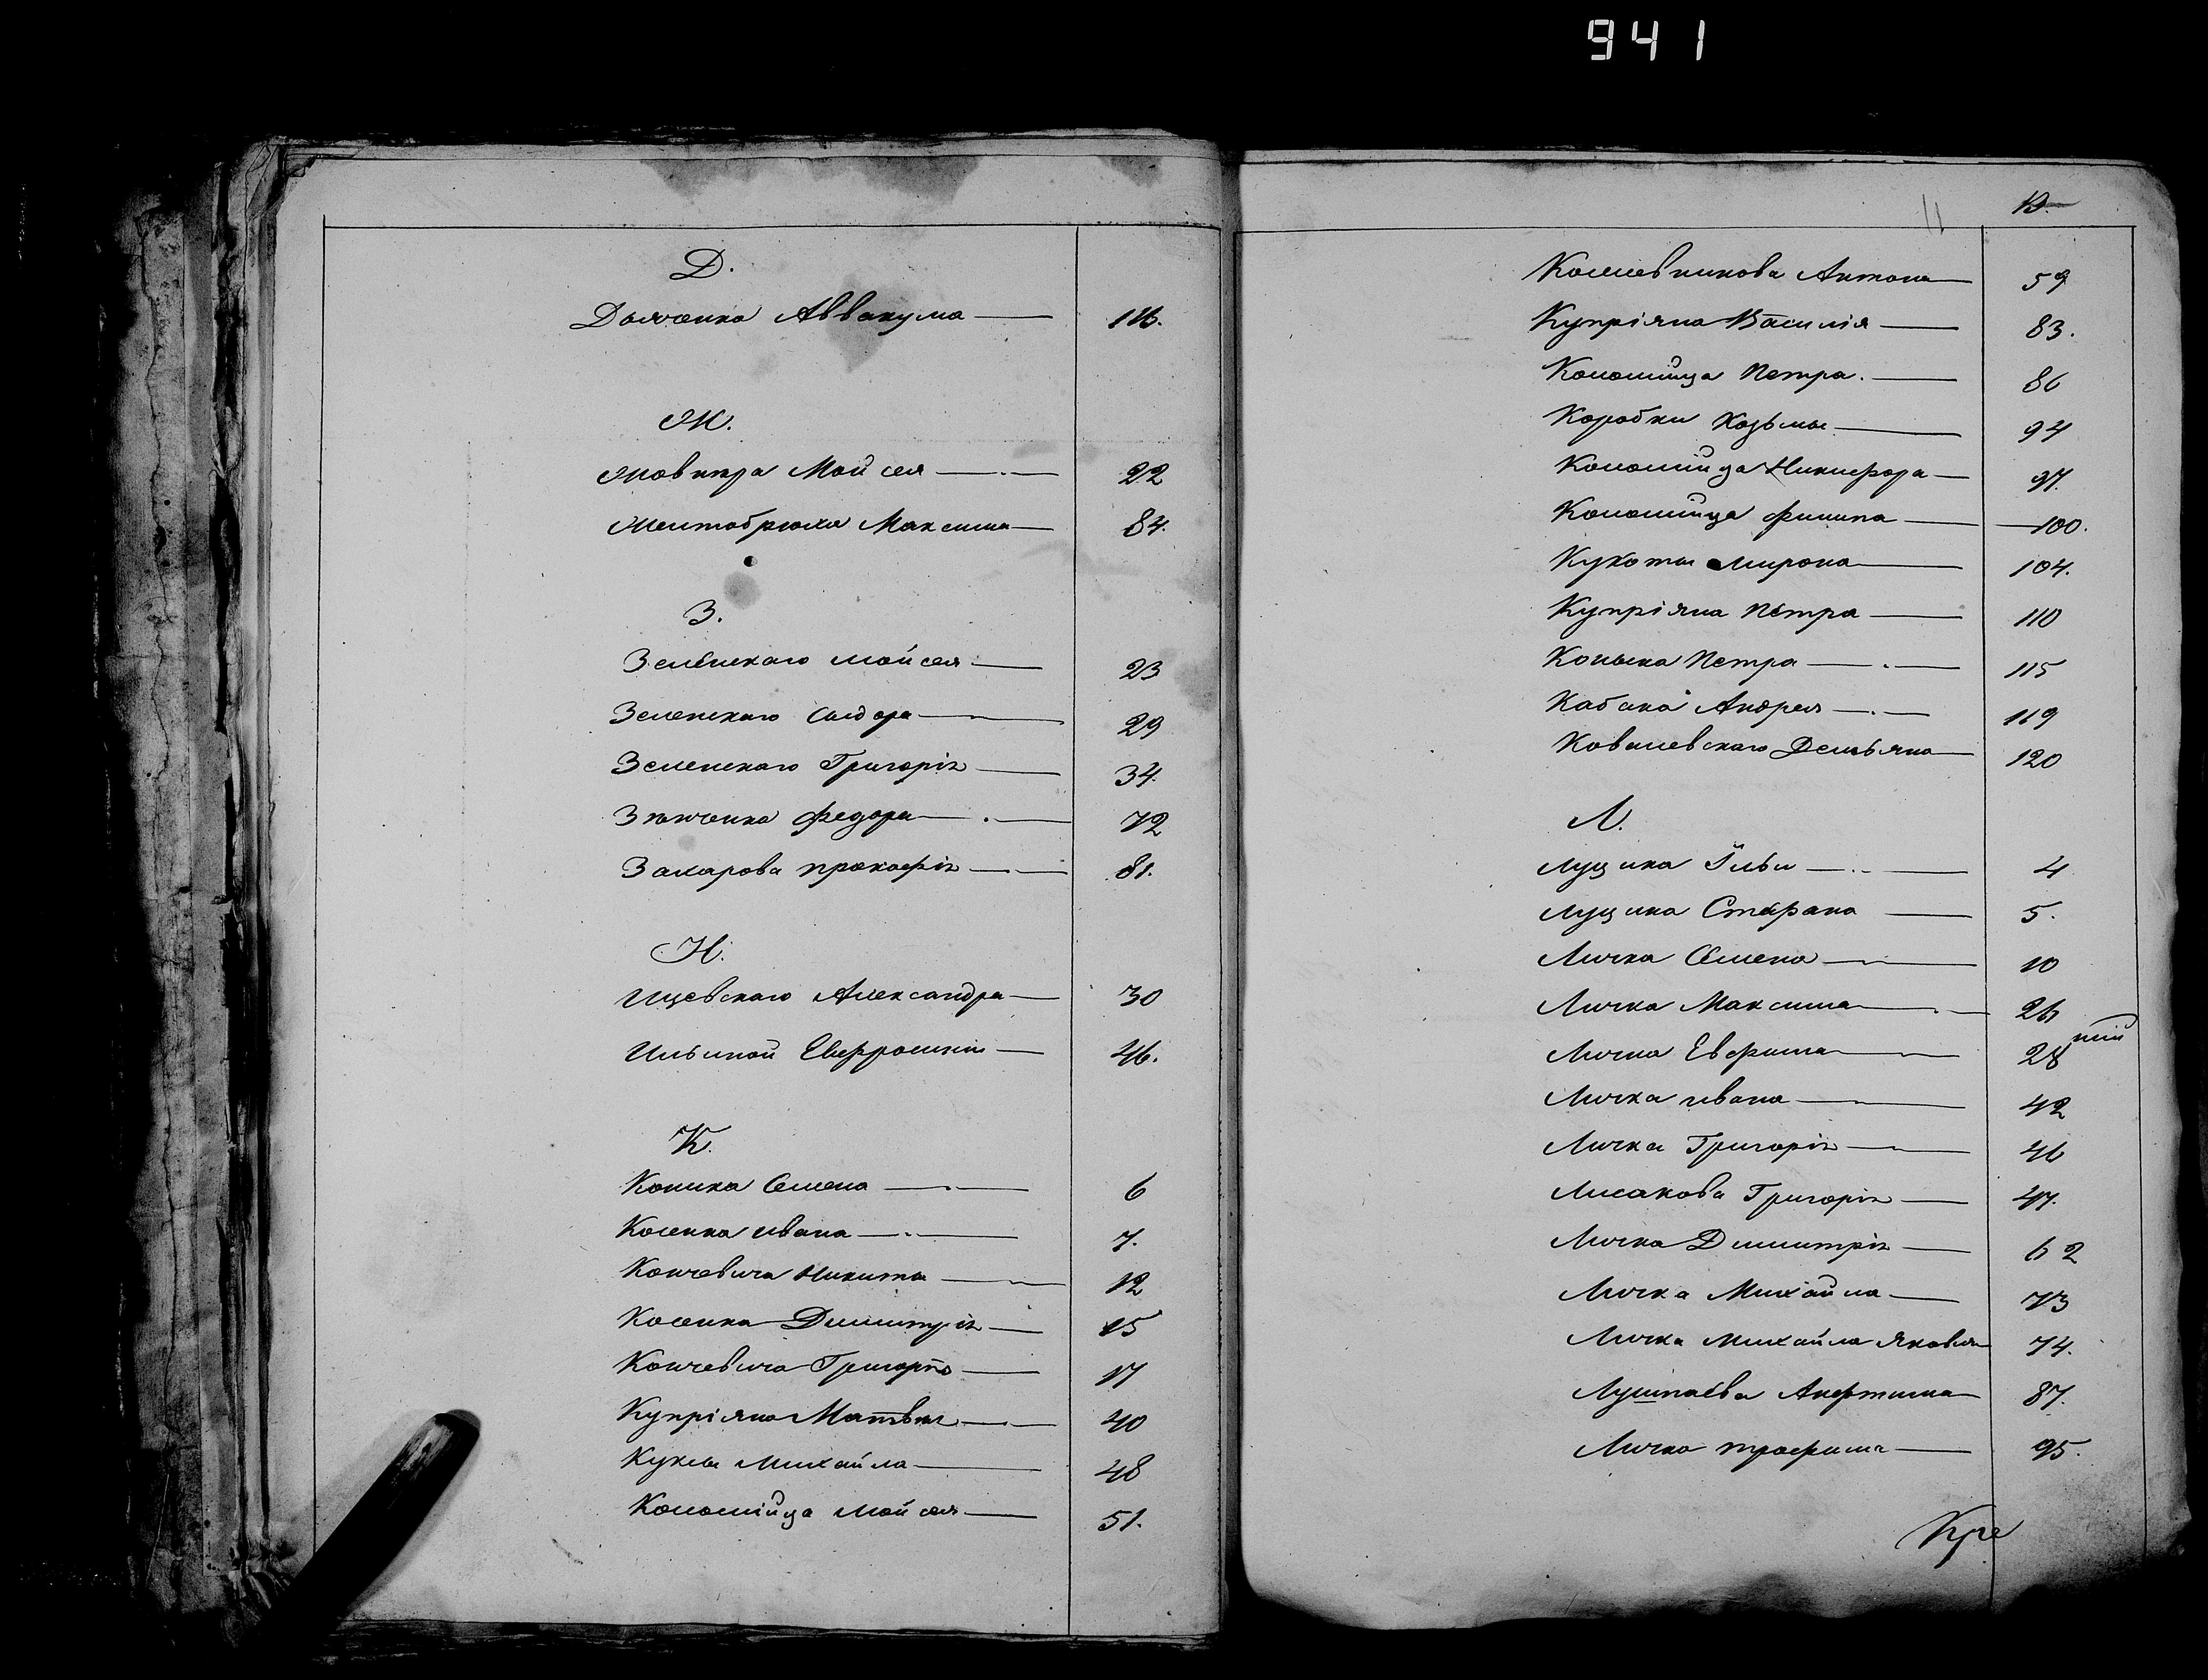 941
Д.
Дьяченка Аввакума — 116.
Ж.
Жовнира Мойсея — 22
Желтобрюха Максима — 84.
З.
Зеленскаго Мойсея — 23
Зеленскаго Сидора — 29
Зеленскаго Григорія — 34.
Зѣнченка Федора — 72
Захарова Прокофія — 81.
И.
Ицевскаго Александра — 30
Ильиной Евфросиніи — 46.
К.
Копика Семена — 6
Косенка Ивана — 7.
Кончевича Никиты — 12
Косенка Димитрія — 15
Кончевича Григорія — 17
Купріяна Матвѣя — 40
Куклы Михайла — 48
Коломійца Мойсея — 51.
11 13.
Кожевникова Антона — 59
Купріяна Василія — 83.
Коломійца Петра. — 86
Коробки Козьмы — 94
Коломійца Никифора — 97.
Коломійца Филипа — 100.
Кукоты Мирона — 104.
Купріяна Петра — 110
Копыка Петра — 115
Кабака Андрея — 119
Ковалевскаго Демьяна — 120
Л.
Луцика Ильи — 4
Луцика Стефана — 5.
Личка Семена — 10
Личка Максима — 26
Личка Евфима — 28
Личка Ивана — 42
Личка Григорія — 46
Лисакова Григорія — 47.
Личка Димитрія — 62
Личка Михайла — 73
Личка Михайла Яковля 74.
Лушпаева Анфтима 87.
Личка Трофима — 95.